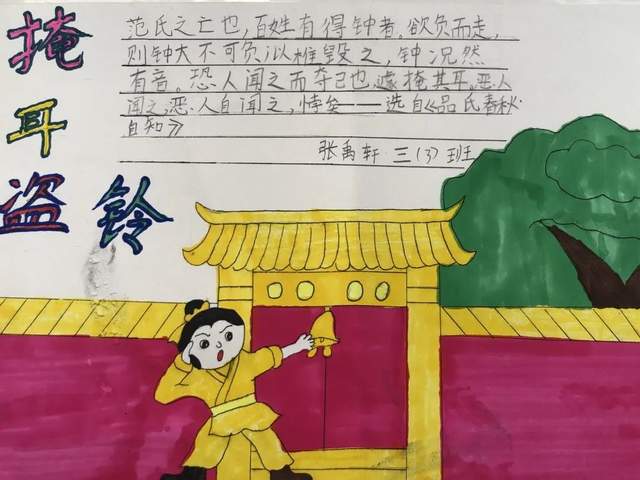 掩耳盗铃
范氏之亡也,百姓有得钟者,欲负而走,
则钟大不可负,以椎毁之,钟况然
有音。恐人闻之而夺己也,遽掩其耳。恶人
闻之,恶·人自闻之,悖矣——选自《品氏春秋·
自知》
张禹轩·三(3)班